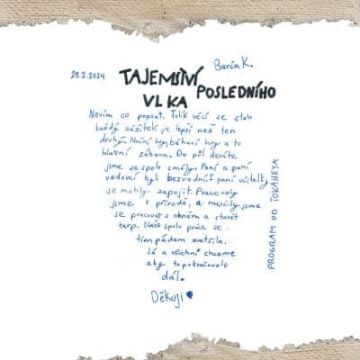 28.2.2024
Barča K.
TAJEMSTVÍ POSLEDNÍHO
VLKA
Nevím co popsat. Tolik věcí se stalo
každý zážitek je lepší než ten
druhý. Noční hry, běhací hry a to
hlavní zábava. Do půl deváté
jsme se spolu smály. Paní a paní
vedoucí byl bezvadní i paní učitelky
se mohly zapojit. Pracovaly
jsme s přírodě, a naučily jsme
se pracovat s ohněm a stavět
tarp. Naše spolu práce se
tím pádem zvětšila.
tá a všichni chceme
aby to pokračovalo
dál.
Děkuji
PROGRAM OD TOKAHEYA